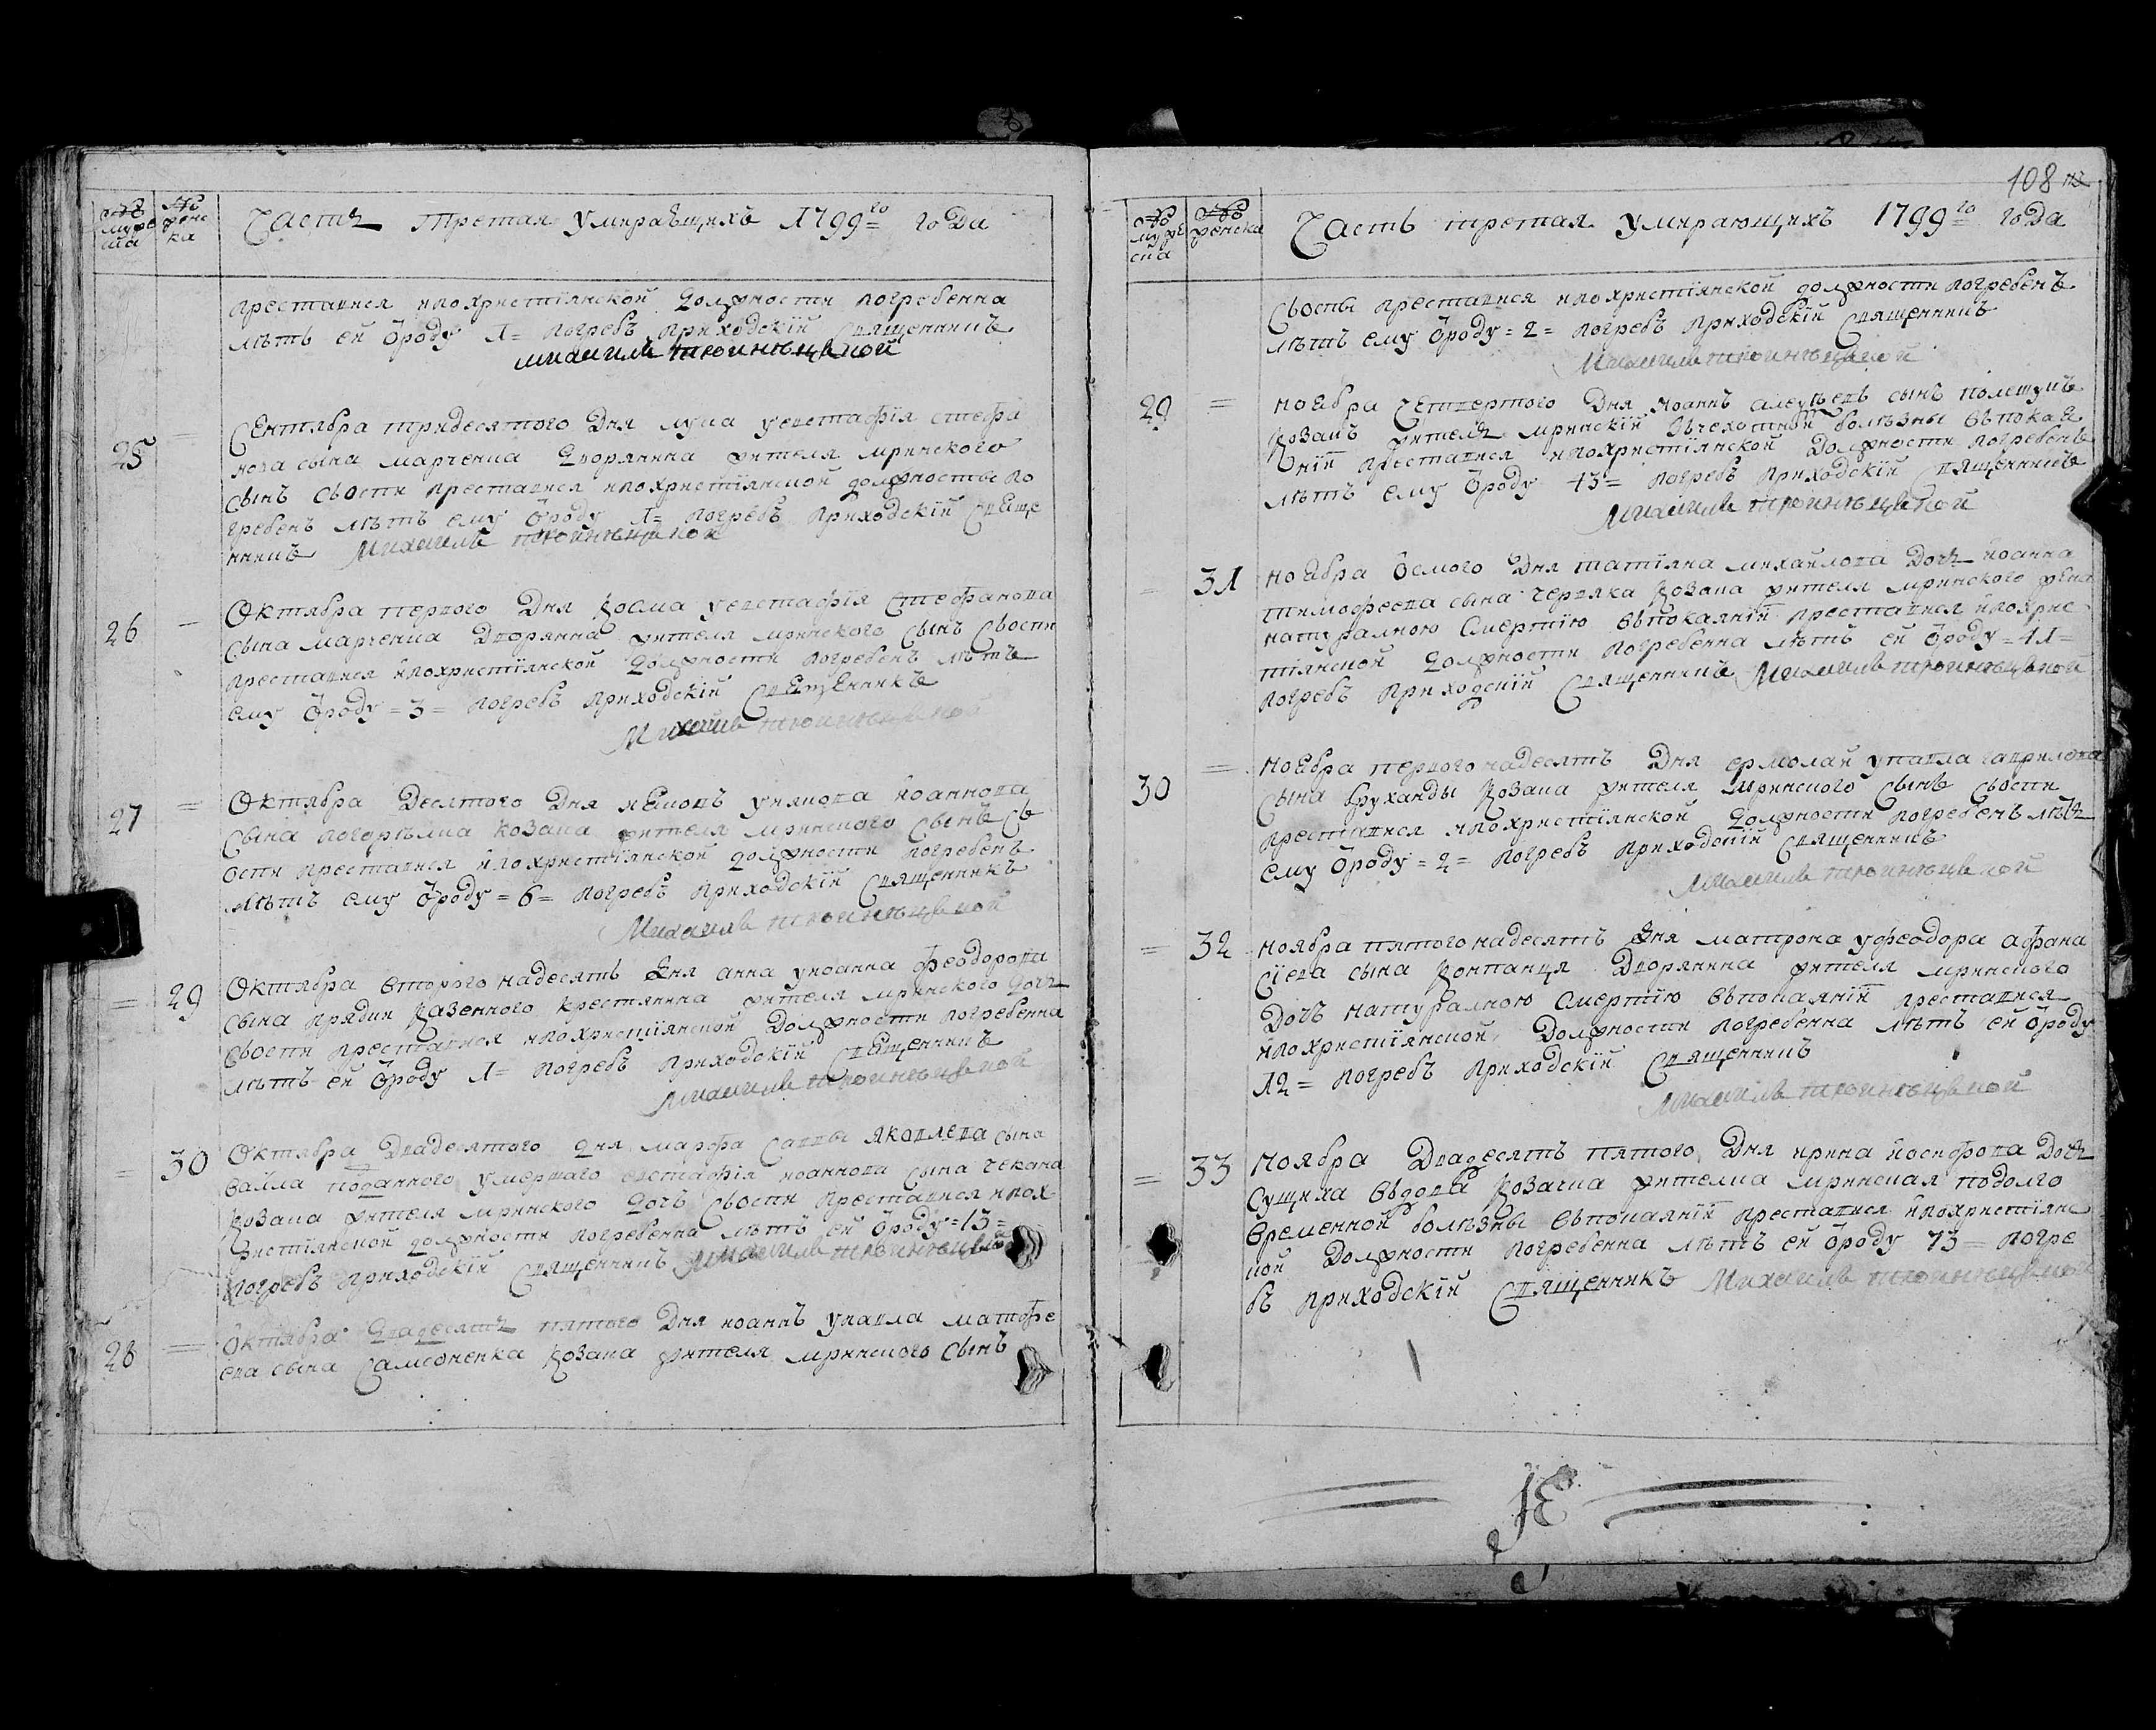 № муже ска
№ женс ка
Часть третая умираѣщихъ 1799го года
преставися ипохристіянской должности погребенна
лѣтъ ей ѿроду 1= погребъ приходскій священникъ
Михаилъ
25
Сентября тридесятого дня лука уевстафія стефа
нова сына марченка дворянина жителя мринского
сынъ свости преставися ипохристіянской должносты по
гребенъ лѣтъ ему ѿроду 1= погребъ приходскій свѣще
нникъ Михаилъ
26 =
Октября первого дня козма уевстафія стефанова
сына марченка дворянина жителя мринского сынъ свости
преставися ипохристіянской должности погребенъ лѣтъ
ему ѿроду =3= погребъ приходскій свѣщенникъ
Михаилъ
27 =
Октября десятого дня уиякова иоаннова
сына погорѣлка козака жителя мринского сынъ св
ости преставися ипохристіянской должности погребенъ
лѣтъ ему ѿроду =6= погребъ приходскій священникъ
Михаилъ
= 29
Октября второго надесять дня анна уиоанна феодорова
сына прядки казенного крестянина жителя мринского дочь
свости преставися ипохристіянской должности погребенна
лѣтъ ей ѿроду 1= погребъ приходскій свѣщенникъ
Михаилъ
= 30
Октября двадесятого дня марфа саввы яковлева сына
подданного умершаго евстафія иоаннова сына чекана
козака жителя мринского дочъ свости преставися ипох
ристіянской должности погребенна лѣтъ ей ѿроду =13=
погребъ приходскій священникъ Михаилъ
28 =
Октября двадесять пятого дня иоаннъ упавла матфе
ева сына самсоненка козака жителя мринского сынъ
108
№ муже ска
№ женска
Часть третая умирающихъ 1799го года
свосты преставися ипохристіянской должности погребенъ
лѣтъ ему ѿроду =2= погребъ приходскій священникъ
Михаилъ
29 =
ноября четвертого дня иоаннъ алеѯѣевъ сынъ полетунъ
козакъ жителъ мринскій ѿчехотной болѣзны въпокая
ніи преставися ипохристіянской должности погребенъ
лѣтъ ему ѿроду 43= погребъ приходскій священникъ
Михаилъ
= 31
ноября ѿсмого дня татіяна михайлова дочъ иоанна
тимофеева сына червяка козака жителя мринского жена
натуралною смертію въпокаяніи преставися ипохрис
тіянской должности погребенна лѣтъ ей ѿроду =41=
погребъ приходскій священникъ Михаилъ
30 =
ноября первого надесять дня ермолай упавла гаврилова
сына бруханды козака жителя мринского сынъ свости
преставися ипохристіянской должности погребенъ лѣтъ
ему ѿроду =2= погребъ приходскій священникъ
Михаилъ
= 32
ноября пятого надесять дня матрона уфеодора афана
сіева сына компанця дворянина жителя мринского
дочъ натуралною смертію въпокаяніи преставися
ипохристіянской должности погребенна лѣтъ ей ѿроду
12= погребъ приходскій священникъ
Михаилъ
= 33
ноября двадесять пятого дня ирина иосифова дочъ
сущиха въдова козачка жителка мринская подолго
временной болѣзны въпокаяніи преставися ипохристіянс
кой должности погребенна лѣтъ ей ѿроду 73= погре
бъ приходскій священникъ Михаилъ